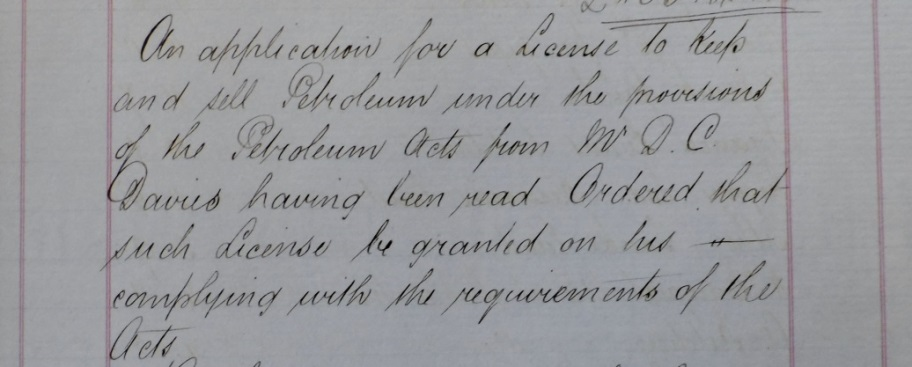 An application for a License to keep
and sell Petroleum under the provisions
of the Petroleum Acts from Mr D. C.
Davies having been read Ordered that
such License be granted on his —
complying with the requirements of the
Acts